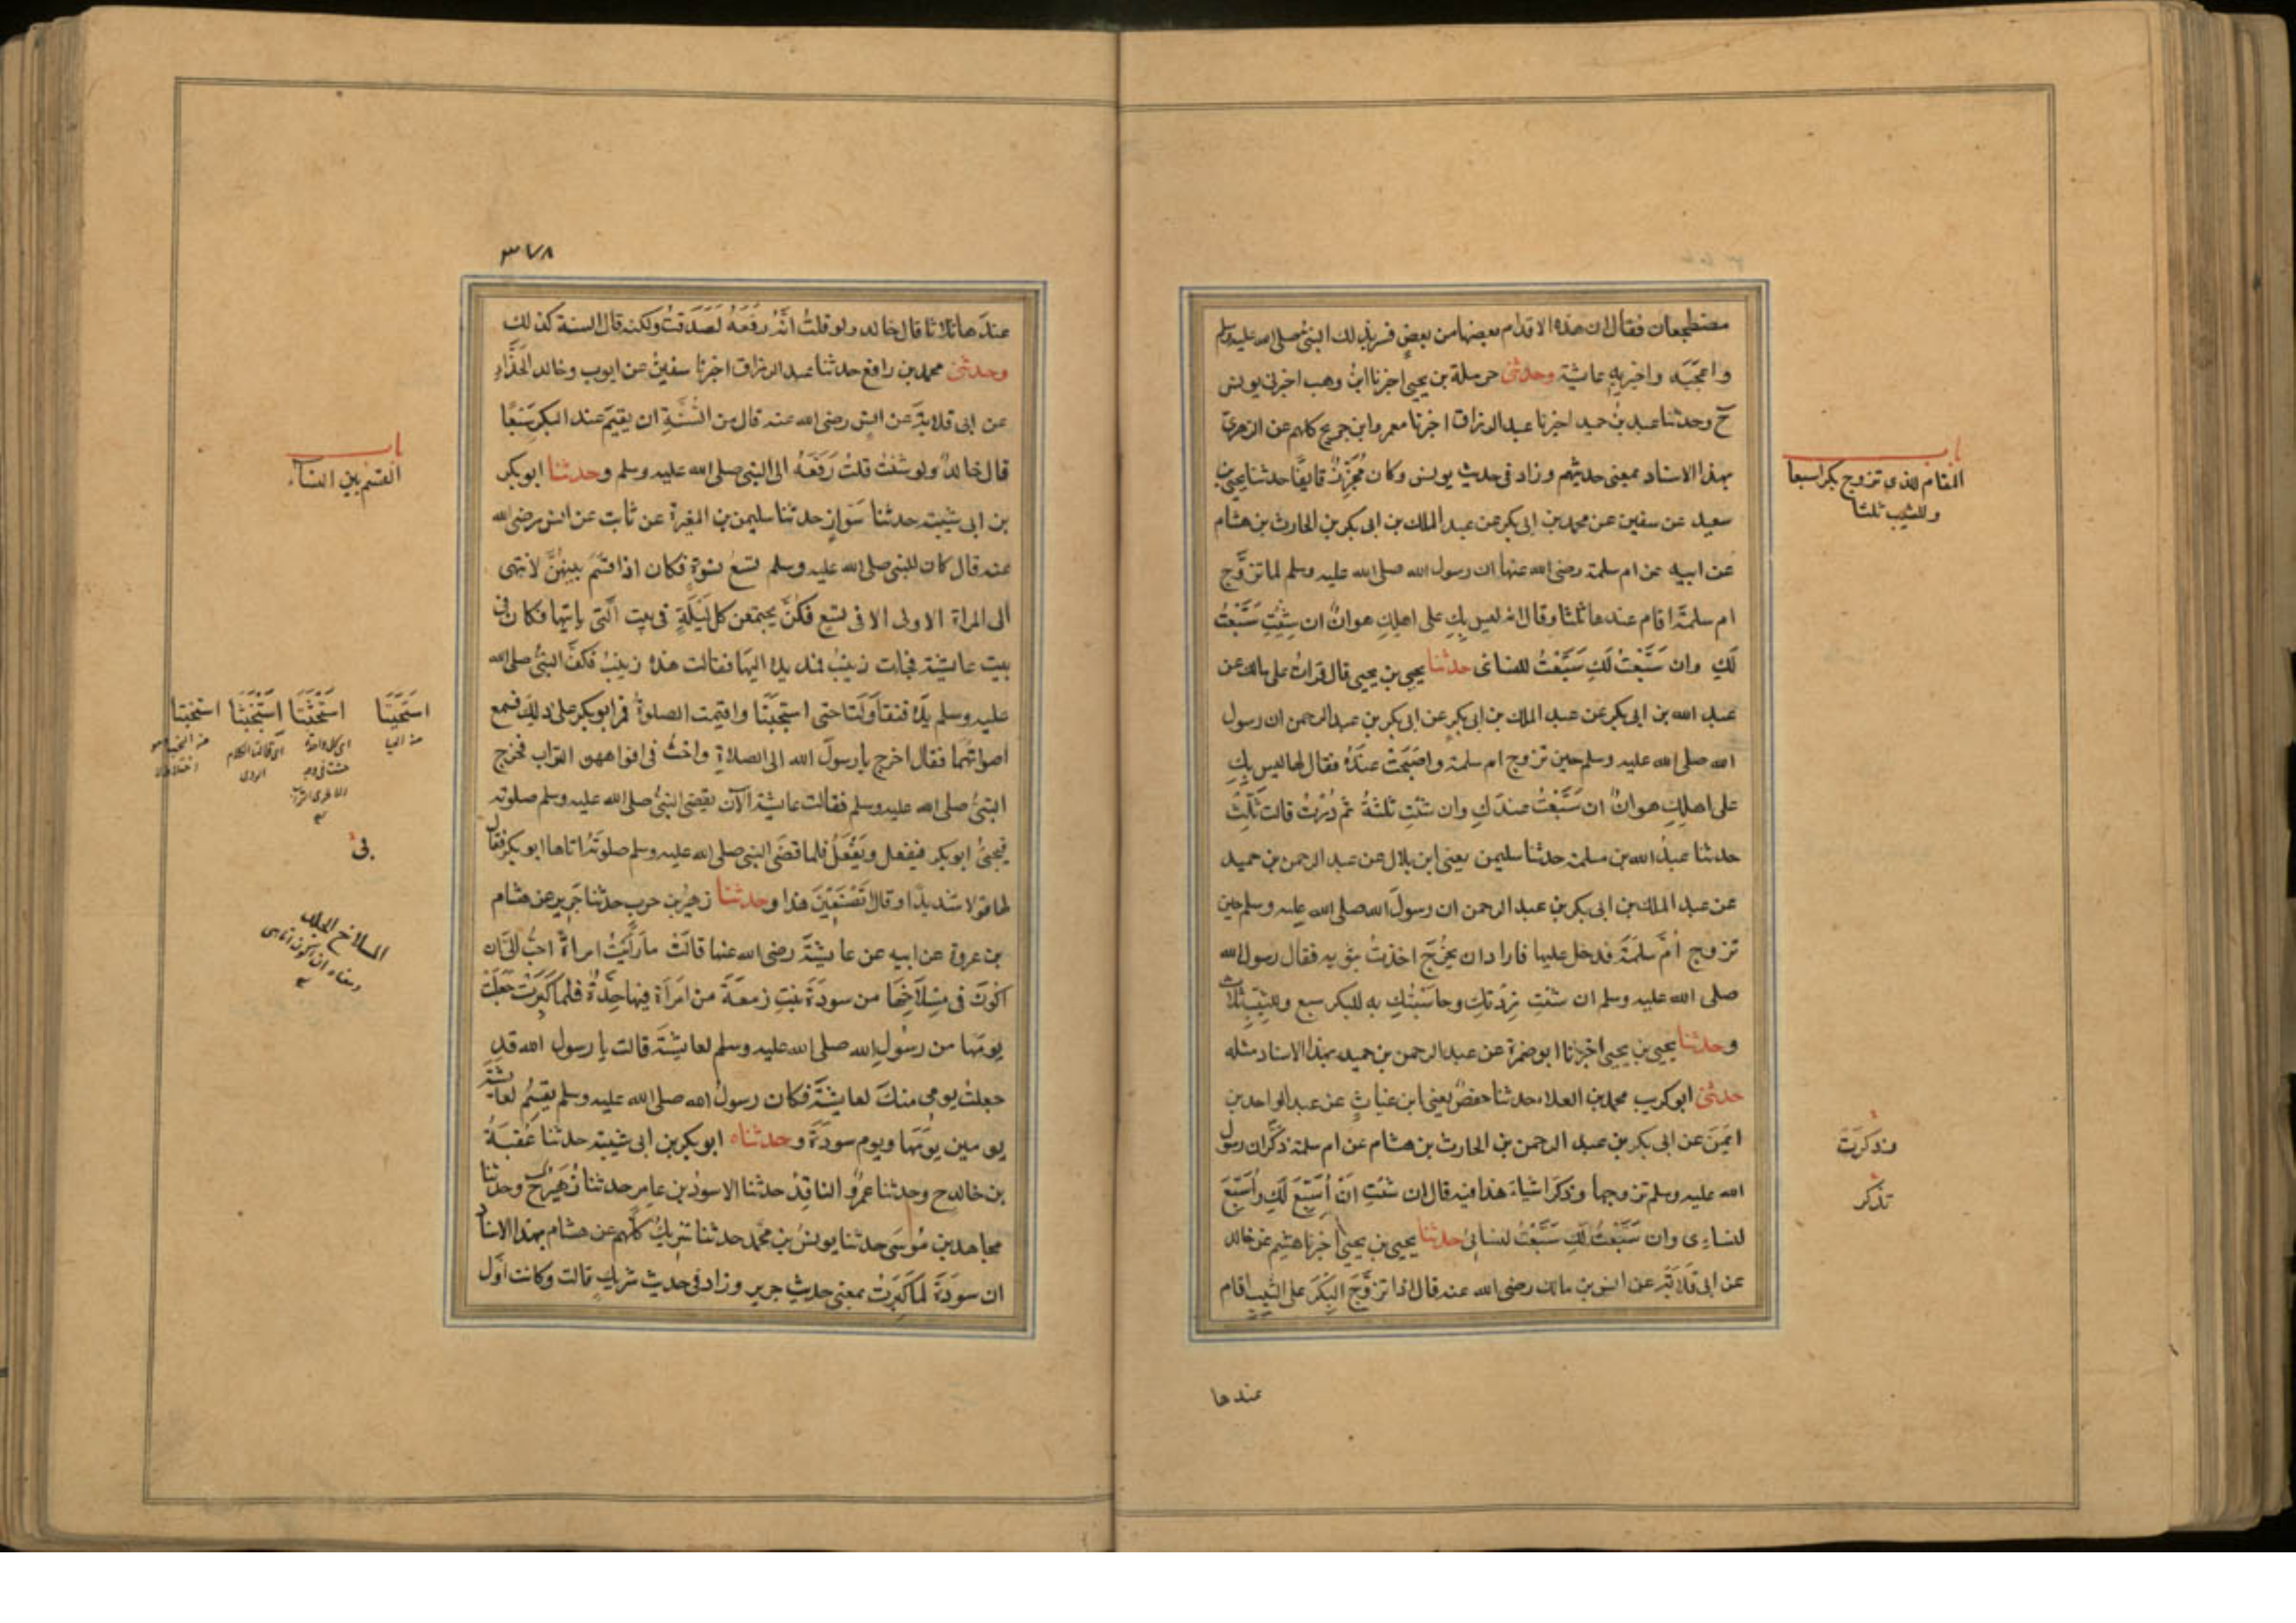 مضطجعان فقال ان هذه الاقدام بعضها من بعض فسر بذلك النبي صلى الله عليه وسلم
واعجبه واخبر به عايشة وحدثنى حرملة بن يحيى اخبرنا ابن وهب اخبرنى يونس
ح وحدثنا عبد بن حميد اخبرنا عبد الرزاق اخبرنا معمر وابن جريج كلهم عن الزهرى
بهذا الاسناد بمعنى حديثهم وزاد فى حديث يونس وكان مجزز قايفا حدثنا يحيى بن
سعيد عن سفين عن محمد بن ابى بكر عن عبد الملك بن ابى بكر بن الحارث بن هشام
عن ابيه عن ام سلمة رضى الله عنها ان رسول الله صلى الله عليه وسلم لما تزوج
ام سلمة اقام عندها ثلثا وقال انه ليس بك على اهلك هوان ان شئت سبعت
لك وان سبعت لك سبعت لنسائى حدثنا يحيى بن يحيى قال قرات على مالك عن
عبد الله بن ابى بكر عن عبد الملك بن ابى بكر عن ابى بكر بن عبد الرحمن ان رسول
الله صلى الله عليه وسلم حين تزوج ام سلمة واصبحت عنده فقال لها ليس بك
على اهلك هوان ان سبعت عندك وان شئت ثلثة ثم درت قالت ثلث
حدثنا عبد الله بن مسلمة حدثنا سليمن يعنى ابن بلال عن عبد الرحمن بن حميد
عن عبد الملك بن ابى بكر بن عبد الرحمن ان رسول الله صلى الله عليه وسلم حين
تزوج ام سلمة فدخل عليها فاراد ان يخرج اخذت بثوبه فقال رسول الله
صلى الله عليه وسلم ان شئت زدتك وحاسبتك به للبكر سبع وللثيب ثلاث
وحدثنا يحيى بن يحيى اخبرنا ابو ضمرة عن عبد الرحمن بن حميد بهذا الاسناد مثله
حدثنى ابو كريب محمد بن العلاء حدثنا حفص يعنى ابن غياث عن عبد الواحد بن
ايمن عن ابى بكر بن عبد الرحمن بن الحارث بن هشام عن ام سلمة ذكر ان رسول
الله عليه وسلم تزوجها وذكر اشياء هذا فيه قال ان شئت ان اسبع لك واسبع
لنساءى وان سبعت لك سبعت لنسائى حدثنا يحيى بن يحيى اخبرنا هشيم عن خالد
عن ابى قلابة عن انس بن مالك رضى الله عنه قال اذا تزوج البكر على الثيب اقام
عندها
باب
المقام للذى تزوج بكرا سبعا
وللثيب ثلثا
وذكرت
تذكر
٣٧٨
عندها ثلاثا قال خالد ولو قلت انه رفعه لصدقت ولكنه قال السنة كذلك
وحدثنى محمد بن رافع حدثنا عبد الرزاق اخبرنا سفين عن ايوب وخالد الحذاء
عن ابى قلابة عن انس رضى الله عنه قال من السنة ان يقيم عند البكر سبعا
قال خالد ولو شئت قلت رفعه الى النبى صلى الله عليه وسلم وحدثنا ابو بكر
بن ابى شيبة حدثنا حدثنا سليمن بن المغيرة عن ثابت عن انس رضى الله
عنه قال كان للنبى صلى الله عليه وسلم تسع نسوة فكان اذا قسم بينهن لا ينتهى
الى المراة الاولى الا فى تسع فكن يجتمعن كل ليلة فى بيت التى ياتيها فكان فى
بيت عايشة فجات زينب فمد يده اليها فقالت هذه زينب فكف النبى صلى الله
عليه وسلم يده فتقاولتا حتى استخبتا واقيمت الصلوة فمر ابو بكر على ذلك فسمع
اصواتهما فقال اخرج يا رسول الله الى الصلاة واحث فى افواههن التراب فخرج
النبى صلى الله عليه وسلم فقالت عايشة الآن يقضى النبى صلى الله عليه وسلم صلوته
فيجئ ابو بكر فيفعل ويفعل فلما قضى النبى صلى الله عليه وسلم صلوته اتاها ابو بكر فقال
لها قولا شديدا وقال اتصنعين هذا وحدثنا زهير بن حرب حدثنا جرير عن هشام
بن عروة عن ابيه عن عايشة رضى الله عنها قالت ما رايت امراة احب الى ان
اكون فى مسلاخها من سودة بنت زمعة من امراة فيها حدة فلما كبرت جعلت
يومها من رسول الله صلى الله عليه وسلم لعايشة قالت يا رسول الله قد
جعلت يومى منك لعايشة فكان رسول الله صلى الله عليه وسلم يقسم لعايشة
يومين يومها ويوم سودة وحدثناه ابو بكر بن ابى شيبة حدثنا عقبة
بن خالد ح وحدثنا عمرو الناقد حدثنا الاسود بن عامر حدثنا زهير ح وحدثنا
مجاهد بن موسى حدثنا يونس بن محمد حدثنا شريك كلهم عن هشام بهذا الاسناد
ان سودة لما كبرت بمعنى حديث جرير وزاد فى حديث شريك قالت وكانت اول
باب
القسم بين النساء
استحيتا استحثتا استخبثتا استخبتا
من الحيا
بى
المسلاخ الجلد